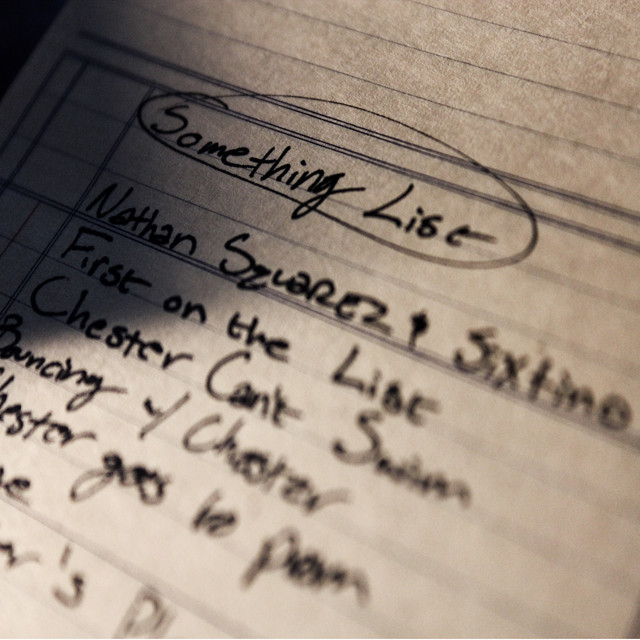 Something List
Nathan Squarez & Sixtino
First on the List
Chester Can't Swim
Bouncing w/ Chester
Chester goes to prom